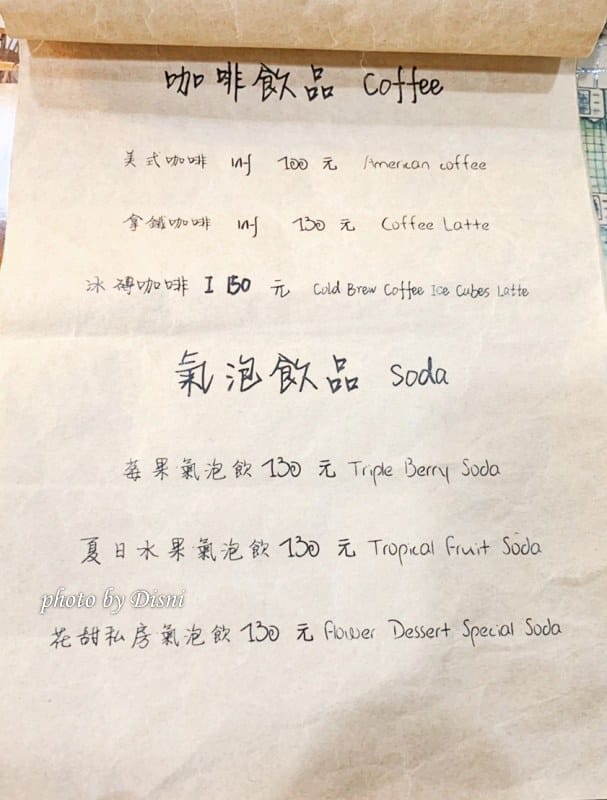 咖啡飲品 Coffee
美式咖啡 I/H 100 元 American coffee
拿鐵咖啡 I/H 130 元 Coffee Latte
冰磚咖啡 I 150 元 Cold Brew Coffee Ice Cubes Latte
氣泡飲品 Soda
莓果氣泡飲 130 元 Triple Berry Soda
夏日水果氣泡飲 130 元 Tropical Fruit Soda
photo by Disni
花甜私房氣泡飲 130 元 Flower Dessert Special Soda